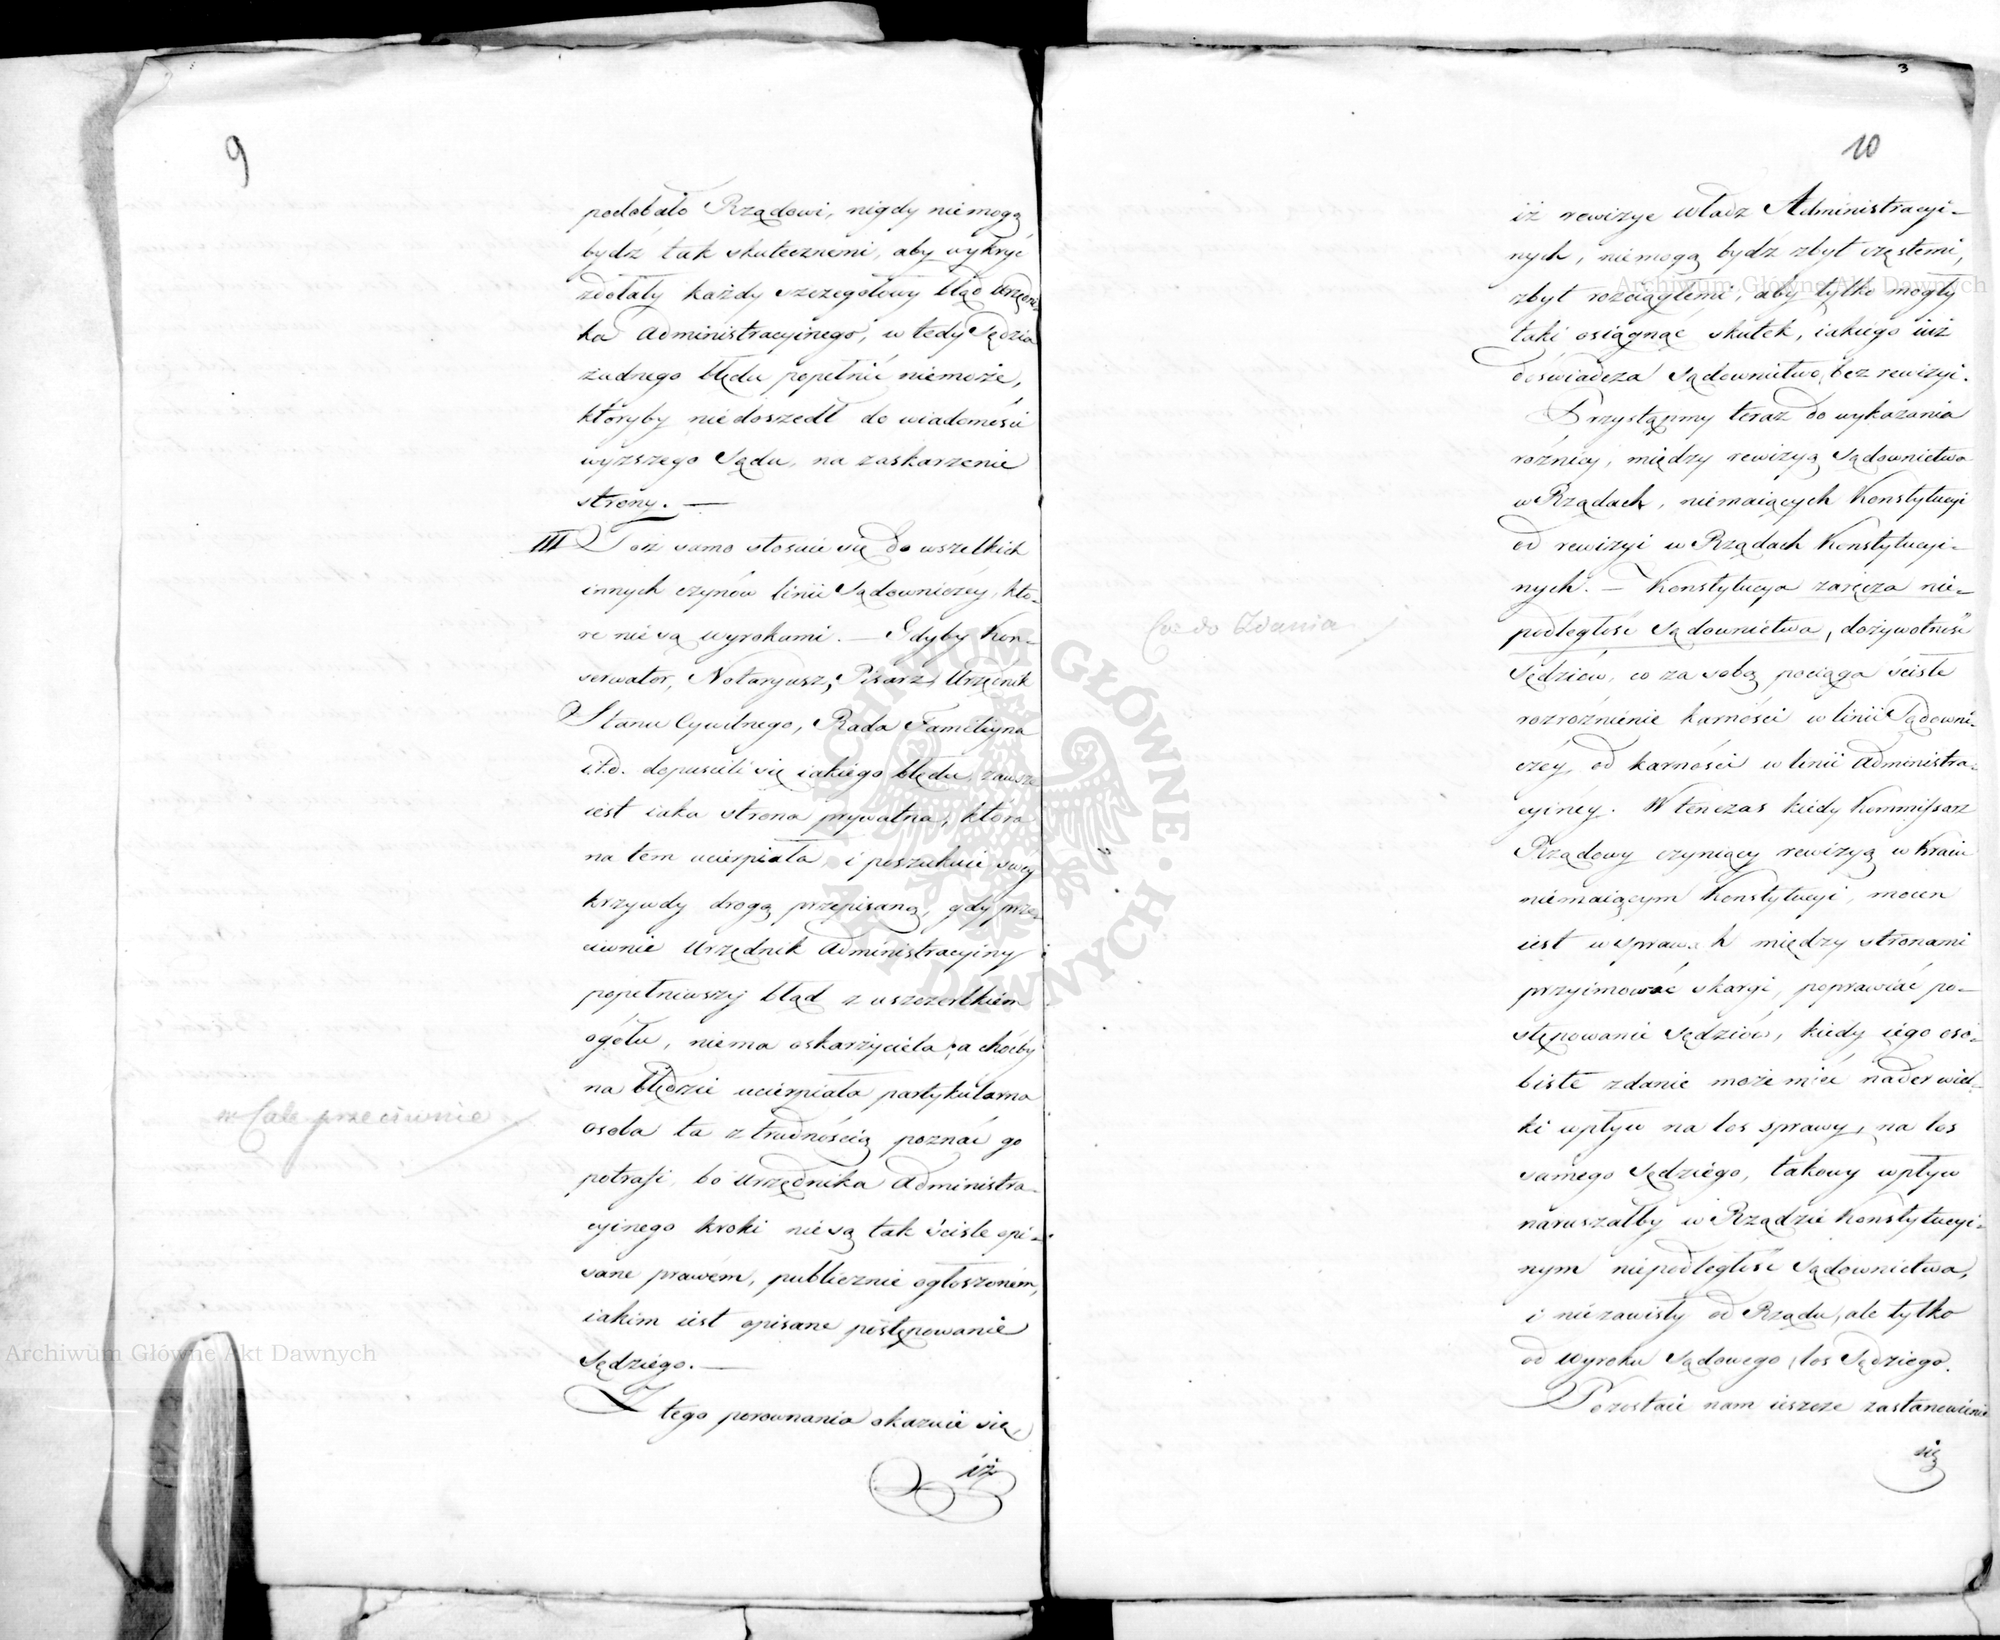 9
podobało Rządowi, nigdy niemogą
bydź tak skutecznemi, aby wykryć
zdołały każdy szczegołowy błąd Urzędni-
ka Administracyinego, w tedy Sędzia
żadnego błędu popełnić niemoże,
któryby niedoszedł do wiadomości
wyższego Sądu, na zaskarzenie
strony. —
III Toż samo stosuie się do wszelkich
innych czynów linii Sądowniczéy, któ-
re nie są wyrokami. — Gdyby Kon-
serwator, Notaryusz, Pisarz, Urzędnik
Stanu Cywilnego, Rada Familiyna
i.t.d. dopuścili się iakiego błędu, zawsze
iest iaka strona prywatna, która
na tem ucierpiała, i poszukuie swey
krzywdy drogą przepisaną, gdy prze-
ciwnie Urzędnik Administracyiny
popełniwszy błąd z uszczerbkiem
ogółu, niema oskarżyciela, a choćby
na błędzie ucierpiała partykularna
osoba ta z trudnością poznać go
potrafi, bo Urzędnika Administra-
cyinego kroki nie są tak ściśle opi-
sane prawem, publicznie ogłoszonem,
iakim iest opisane postępowanie
Sędziego. —
Z tego porownania okazuie się,
iż
w Cale przeciwnie
3
10
iż rewizye Władz Administracyi-
nych, niemogą bydź zbyt częstemi,
zbyt rozciągłemi, aby tylko mogły
taki osiągnąć skutek, iakiego iuż
doświadcza Sądownictwo, bez rewizyi.
Przystąpmy teraz do wykazania
różnicy, między rewizyą Sądownictwa
w Rządach, niemaiących Konstytucyi
od rewizyi w Rządach Konstytucyi-
nych. — Konstytucya zaręcza nie-
podległość Sądownictwa, dożywotność
Sędziów, co za sobą pociąga ściśle
rozróżnienie karności w linii Sądowni-
czéy, od karności w linii Administra-
cyinéy. W tenczas kiedy Kommissarz
Rządowy czyniący rewizyą w Kraiu
niemaiącym Konstytucyi, mocen
iest w sprawach między stronami
przyimować skargi, poprawiać po-
stępowanie Sędziów, kiedy iego oso-
biste zdanie może mieć nader wiel-
ki wpływ na los sprawy, na los
samego Sędziego, takowy wpływ
naruszałby w Rządzie Konstytucyi-
nym niepodległość Sądownictwa,
i niezawisły od Rządu, ale tylko
od Wyroku Sądowego, los Sędziego.
Pozostaie nam ieszcze zastanowienie
się
Coż do Zdania
Archiwum Główne Akt Dawnych
Archiwum Główne Akt Dawnych
ARCHIWUM GŁÓWNE AKT DAWNYCH